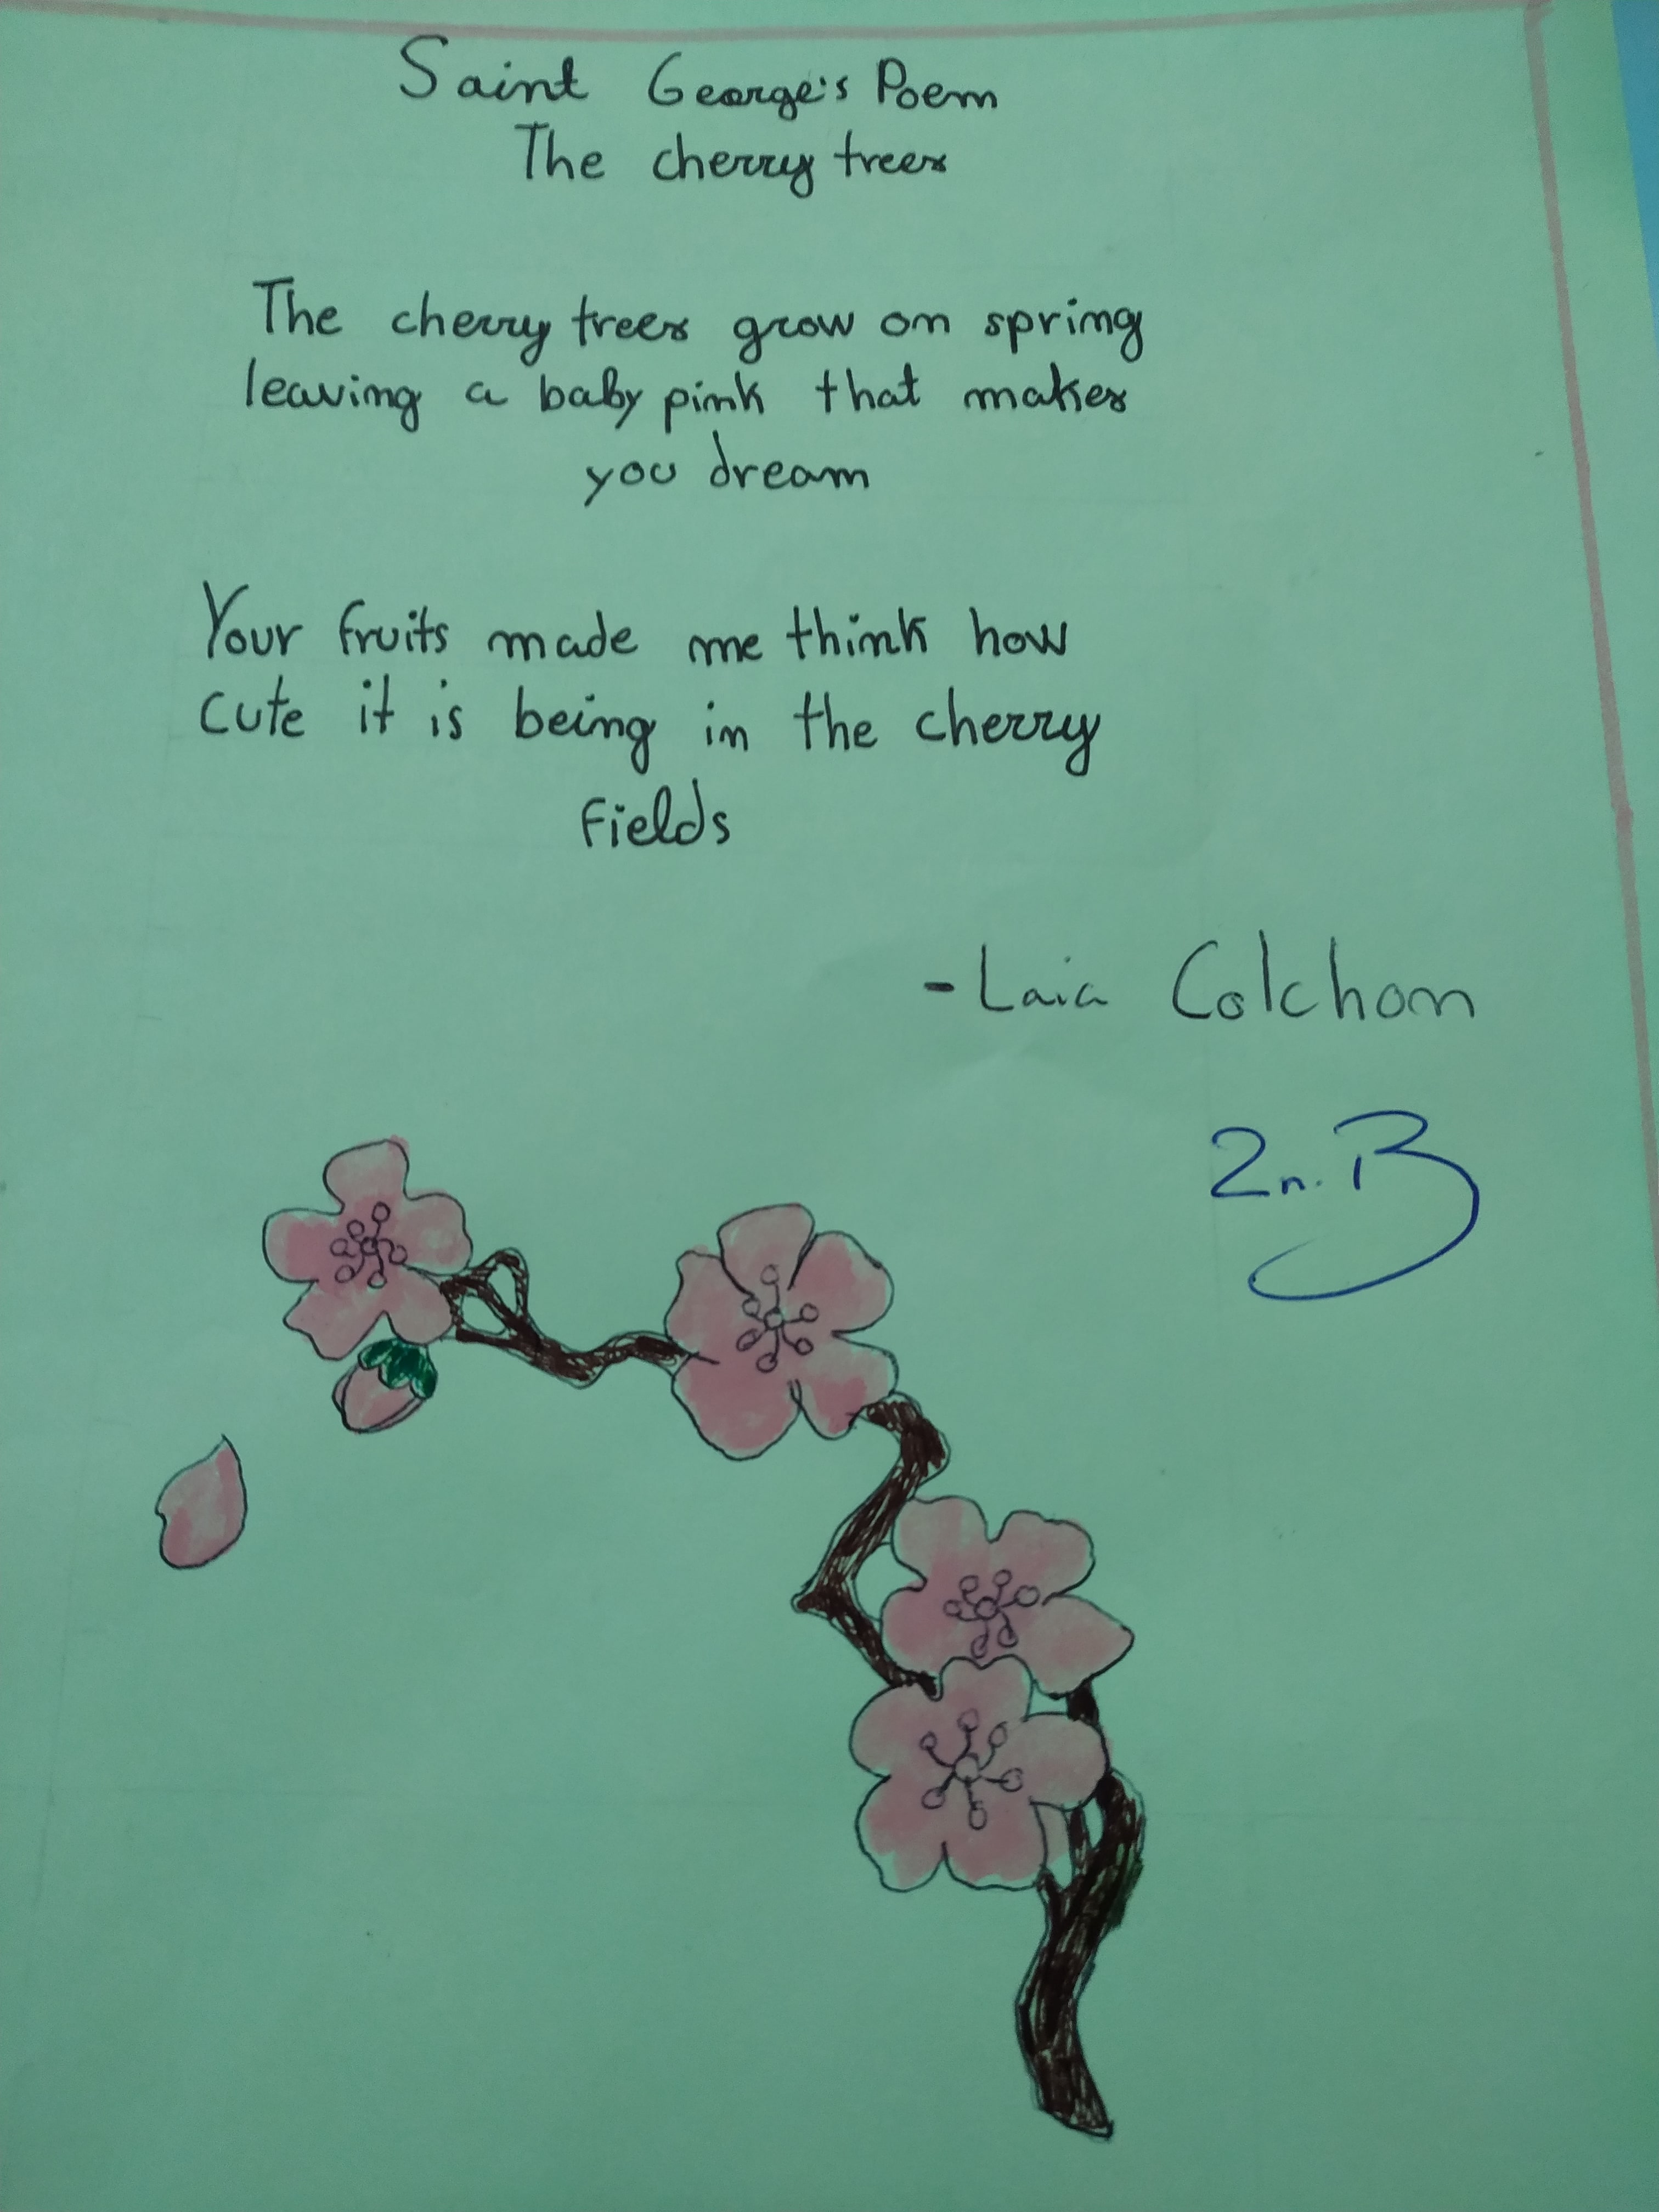 Saint George's Poem
The cherry trees
The cherry trees grow on spring
leaving a baby pink that makes
you dream
Your fruits made me think how
cute it is being in the cherry
fields
-Laia Colchom
2n. B